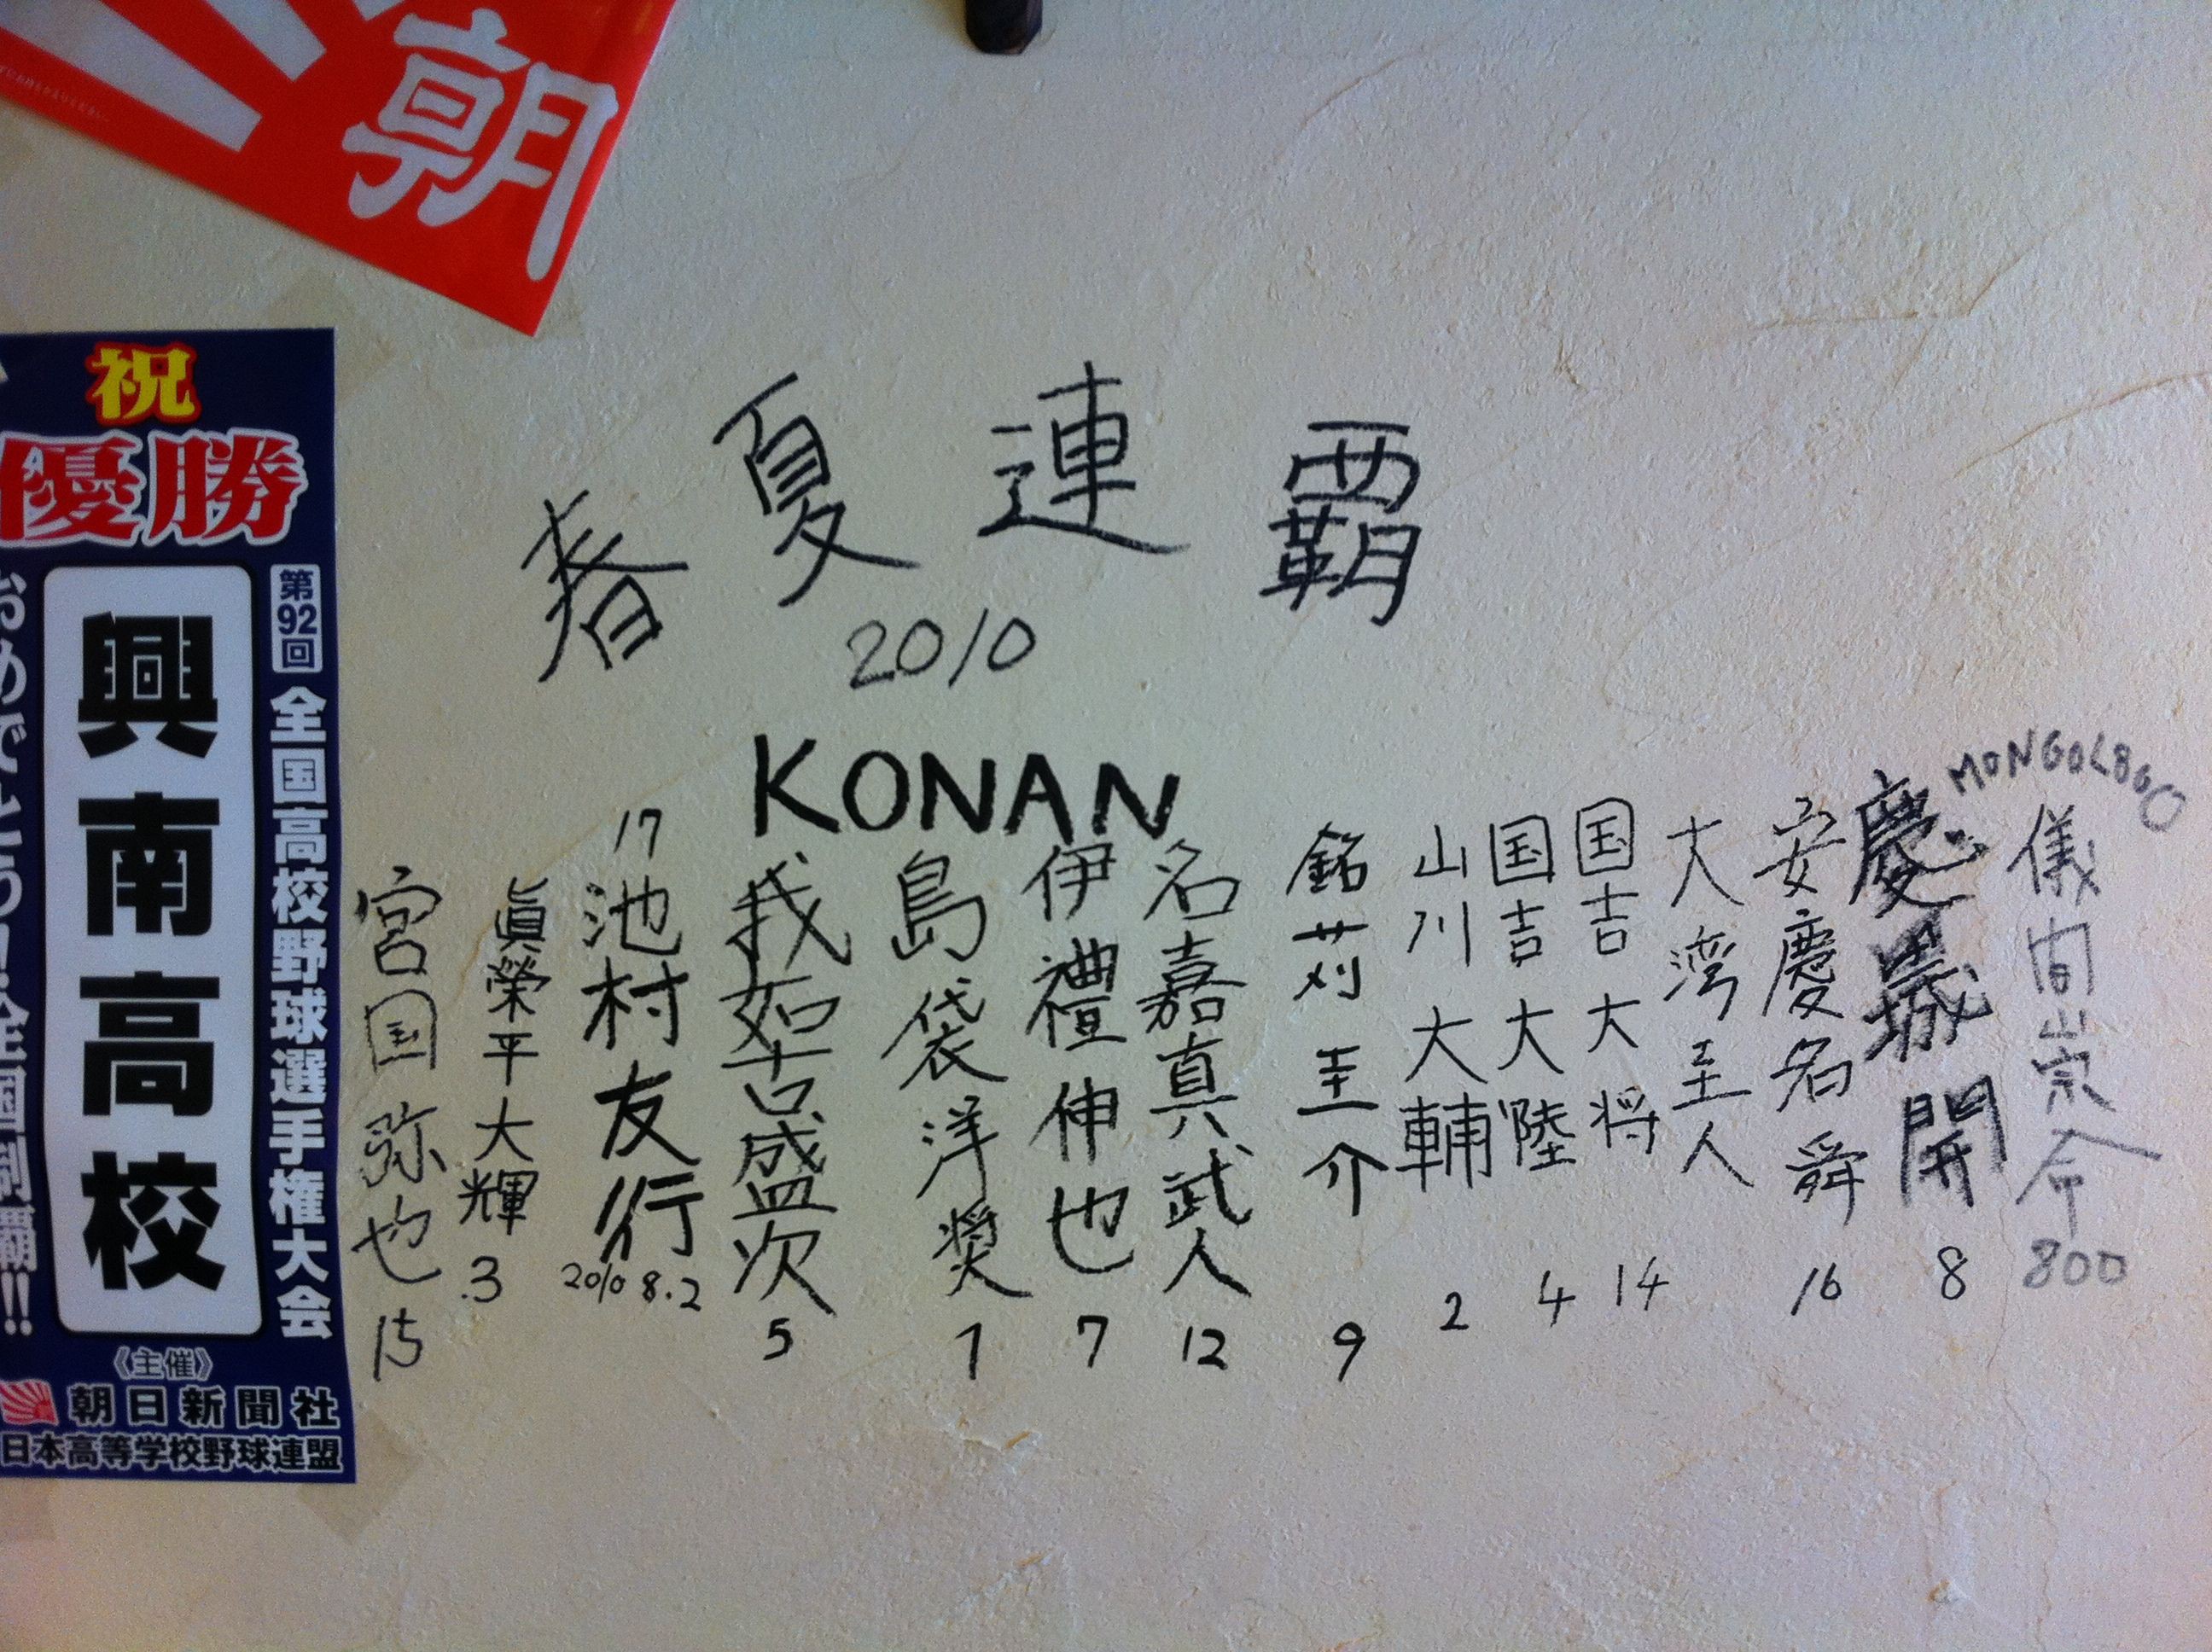 朝
祝
優勝
第92回 全国高校野球選手権大会
興南高校
《主催》
朝日新聞社
日本高等学校野球連盟
春夏連覇
2010
KONAN
宮国弥也 15
眞榮平大輝 .3
17 池村友行 2010 8.2
我如古盛次 5
島袋洋奨 1
伊禮伸也 7
名嘉真武人 12
銘苅圭介 9
山川大輔 2
国吉大陸 4
国吉大将 14
大湾圭人
安慶名舜 16
慶田城開 8
MONGOL800
儀間崇 800